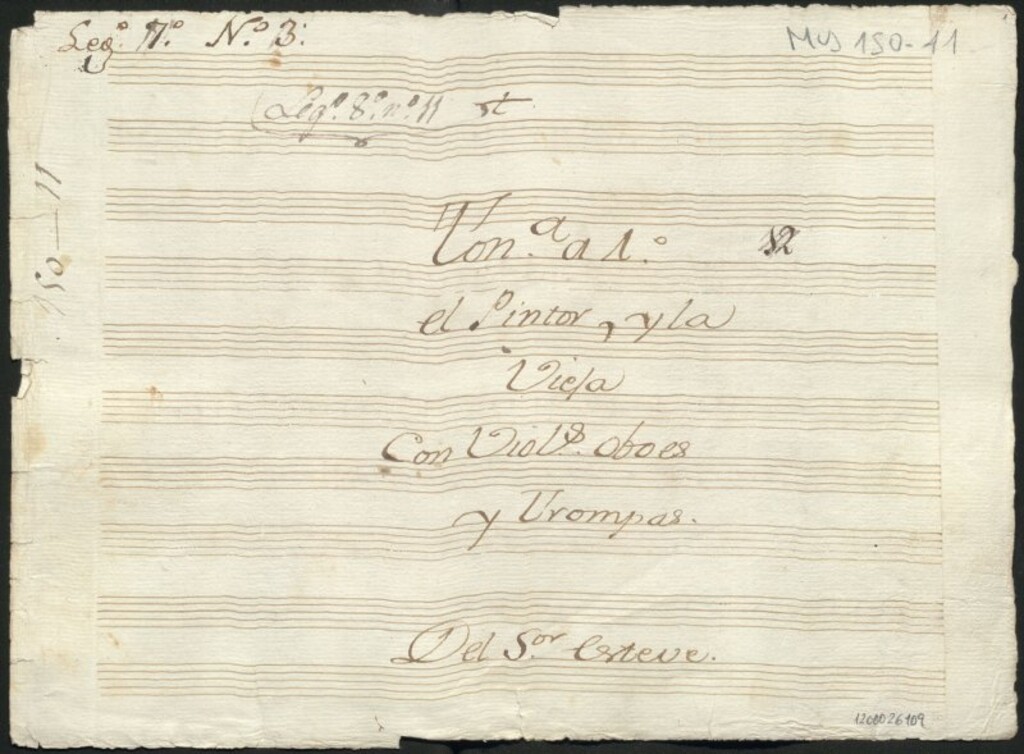 Leg.º 17.º N.º 3.
Mus 150-11
(Leg.º 8.º n.º 11
150—11
Ton.ª a 1.º 12
el Pintor, y la
Vieja
Con Viol.s oboes
y Trompas.
Del S.or Esteve.
1200026109